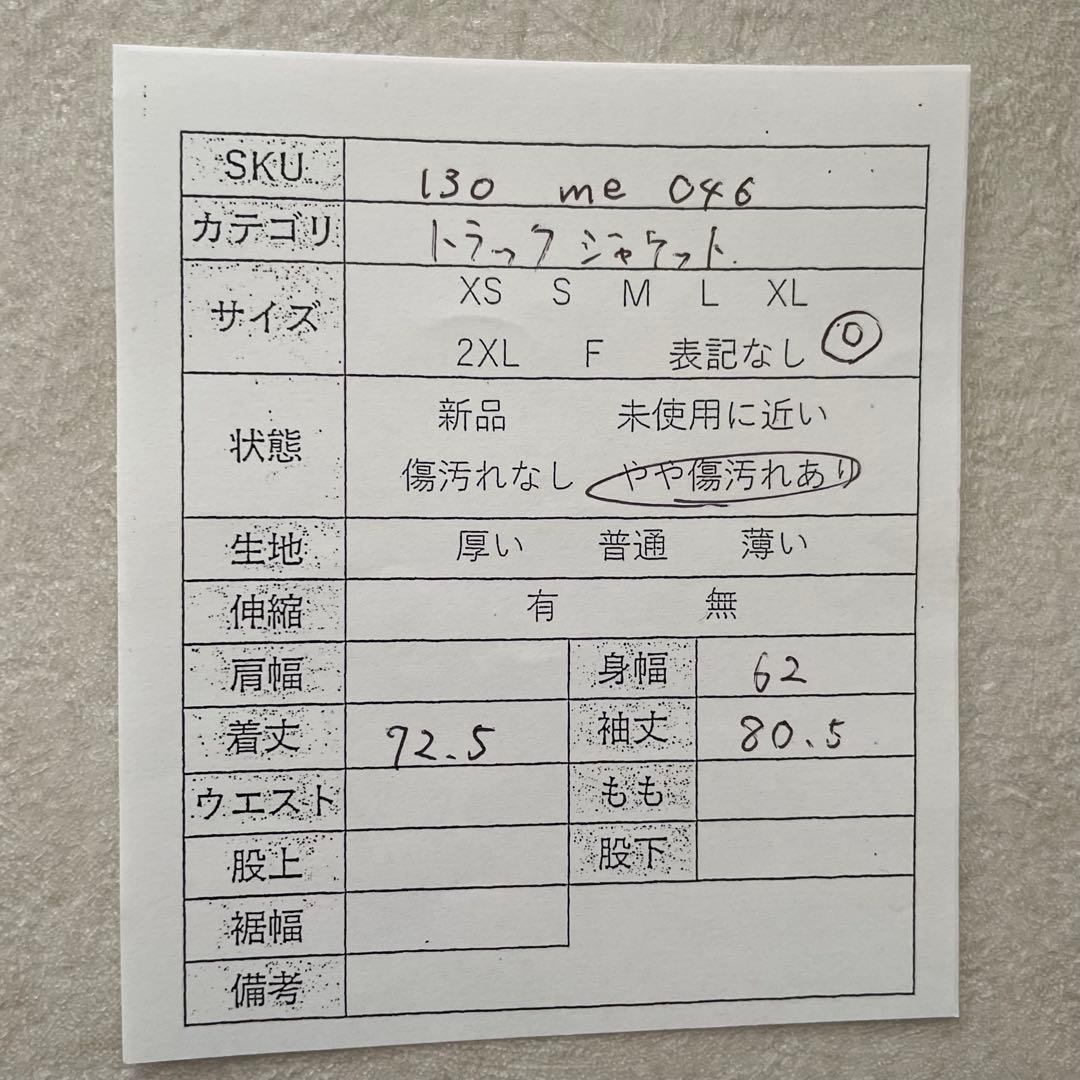 SKU 130 me 046
カテゴリ トラックジャケット
サイズ XS S M L XL
2XL F 表記なし 0
状態 新品 未使用に近い
傷汚れなし やや傷汚れあり
生地 厚い 普通 薄い
伸縮 有 無
肩幅 身幅 62
着丈 72.5 袖丈 80.5
ウエスト もも
股上 股下
裾幅
備考